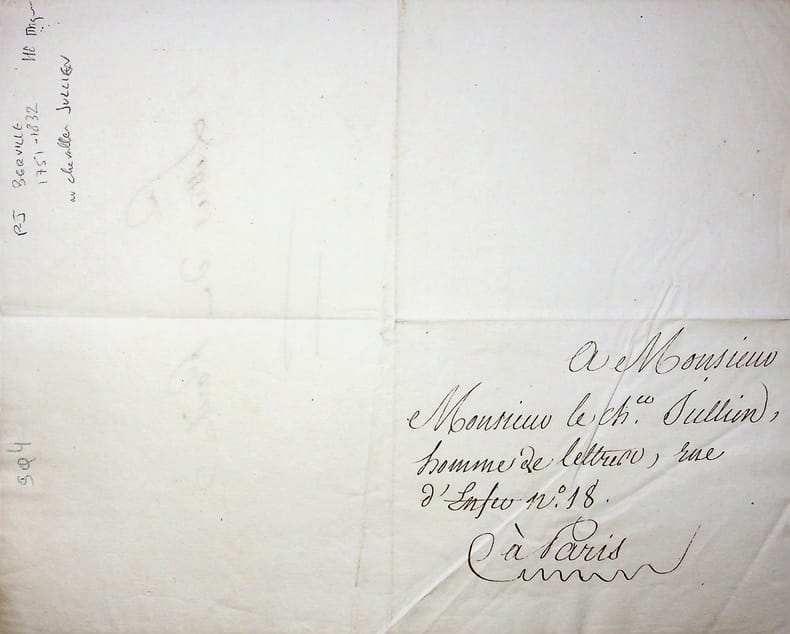 A Monsieur
Monsieur le ch.er Jullien,
homme de lettres, rue
d'Enfer n.o 18.
à Paris
RJ BERVILLE
1751-1832
au chevalier JULLIEN